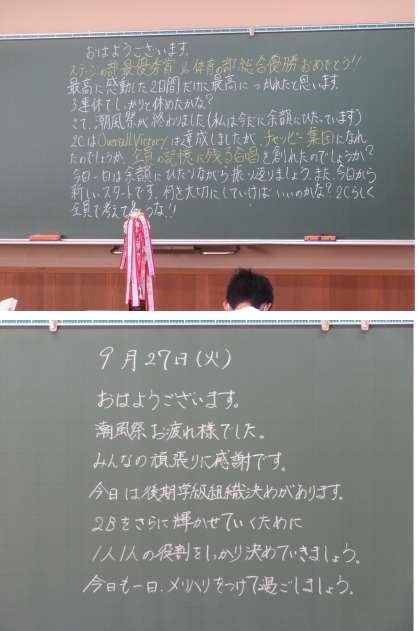 おはようございます。
ステージの部最優秀賞&体育の部総合優勝おめでとう!!
最高に感動した2日間だけに最高につかれたと思います。
3連休でしっかりと休めたかな?
さて、潮風祭が終わりました(私は今だに余韻にひたっています)
2CはOverall Victoryは達成しましたが、チャンピオン集団になれ
たのでしょうか、全員の記憶に残る合唱を創れたのでしょうか?
今日一日は余韻にひたりながら振り返りましょう。また、今日から
新しいスタートです。何を大切にしていけばいいのかな?2Cらしく
全員で考えて
9月27日(火)
おはようございます。
潮風祭お疲れ様でした。
みんなの頑張りに感謝です。
今日は後期学級組織決めがあります。
2Bをさらに輝かせていくために
1人1人の役割をしっかり決めていきましょう。
今日も一日、メリハリをつけて過ごしましょう。